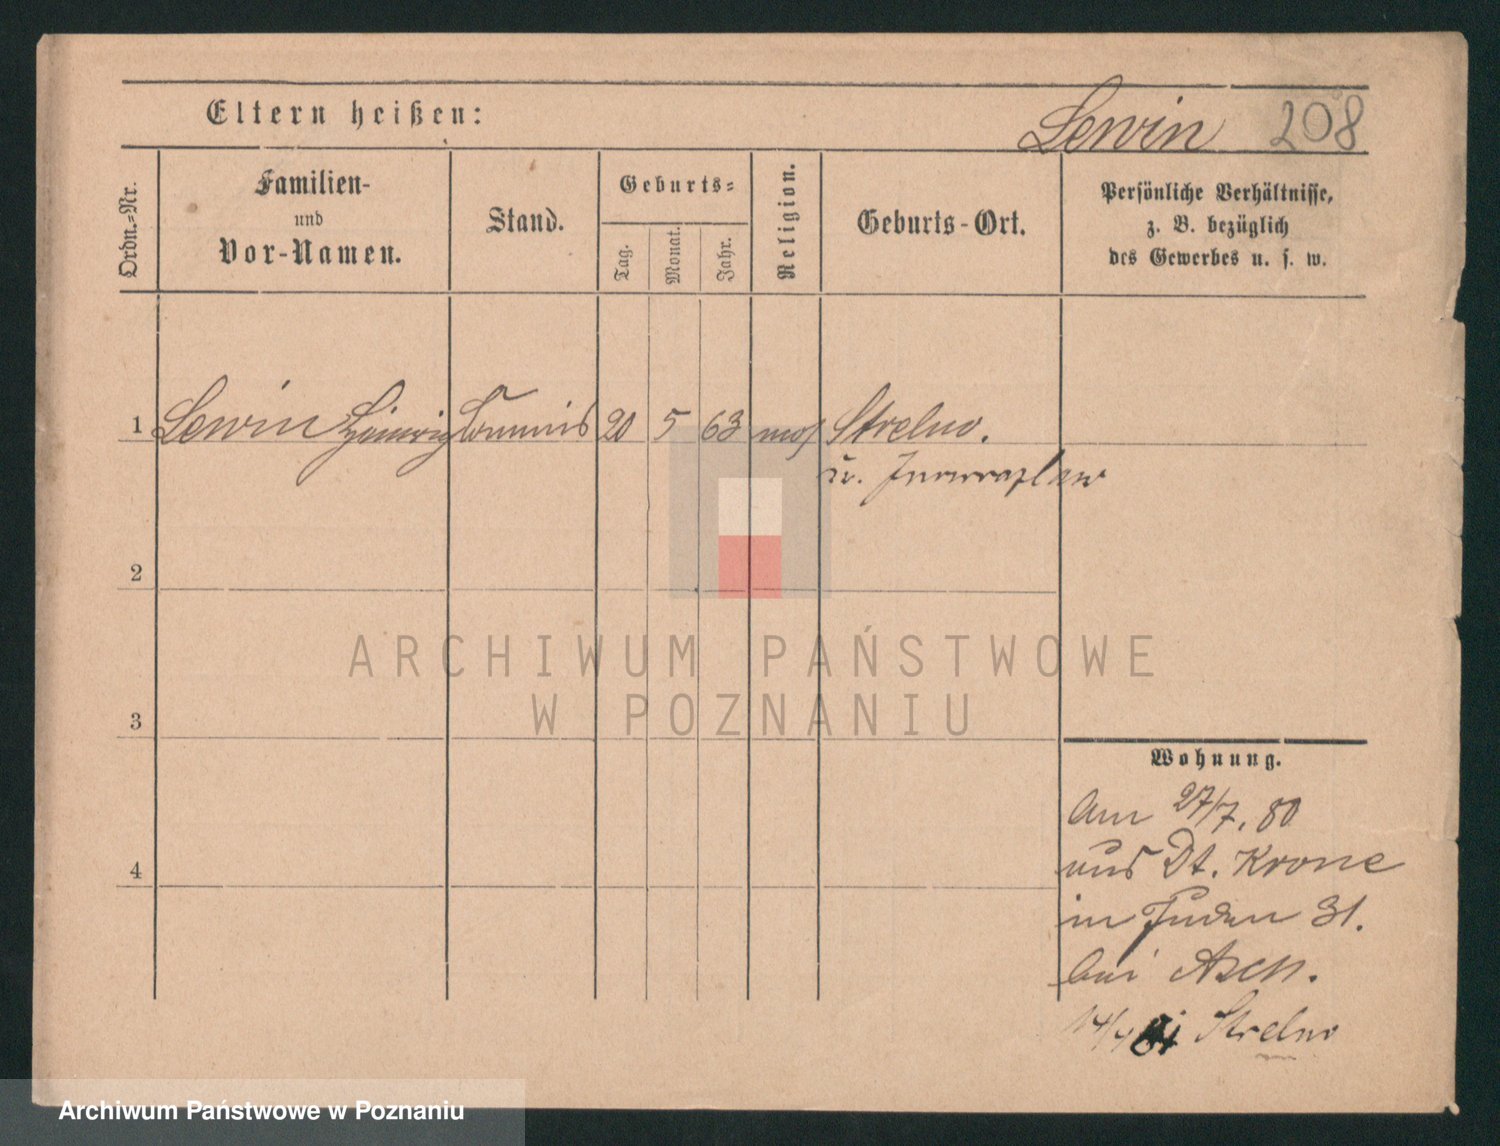 Eltern heißen:
Lewin 208
Ordn.-Nr.
Familien-
und
Vor-Namen.
Stand.
Geburts-
Tag.
Monat.
Jahr.
Religion.
Geburts-Ort.
Persönliche Verhältnisse,
z. B. bezüglich
des Gewerbes u. s. w.
1 Lewin Commis 20 5 63 mos Strelno.
Inowrazlaw
2
3
4
ARCHIWUM PAŃSTWOWE
W POZNANIU
Wohnung.
Am 27/7. 80
aus Dt. Krone
in Juden 31.
bei Asch.
Strelno
Archiwum Państwowe w Poznaniu